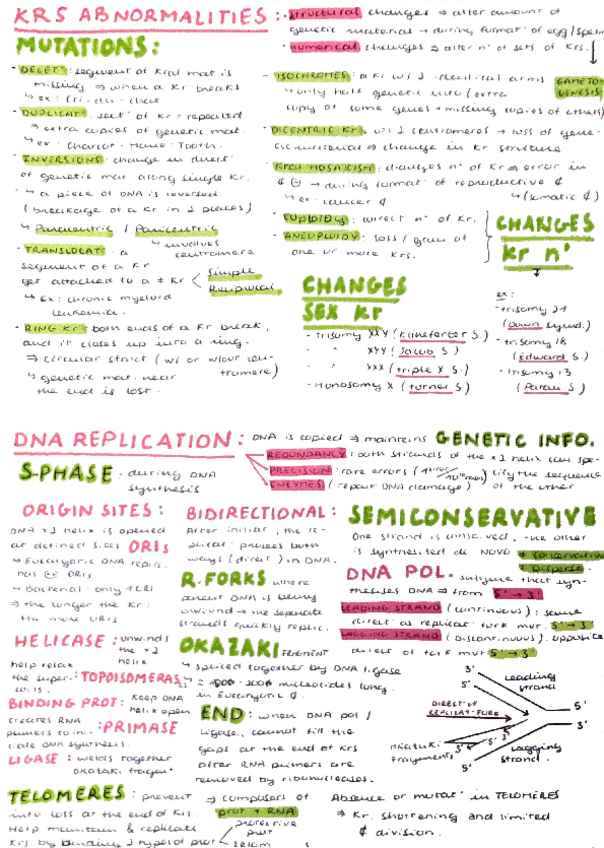 KRS ABNORMALITIES :
· structural changes → alter amount of
genetic material → during format° of egg/sperm
· numerical changes → alter n° of sets of Krs.
MUTATIONS:
· DELET°: segment of Kral mat is
missing ⇒ when a Kr breaks
↳ ex: Cri-du-chat
· DUPLICAT°: sect° of Kr repeated
⇒ extra copies of genetic mat.
↳ ex: Charcot-Marie-Tooth.
· INVERSIONS: change in direct°
of genetic mat along single Kr.
↳ a piece of DNA is reversed
(breakage of a Kr in 2 places)
↳ Paracentric / Pericentric
↳ involves
centromere
· TRANSLOCAT°: a
segment of a Kr
get attached to a ≠ Kr
Simple
Reciprocal
↳ Ex: chronic myeloid
leukemia.
· RING Kr: both ends of a Kr break,
and it closes up into a ring.
⇒ circular struct (w/ or w/out cen-
tromere)
↳ genetic mat. near
the end is lost.
· ISOCHROMES: a Kr w/ 2 identical arms
GAMETO-
GENESIS
↳ only half genetic info (extra
copy of some genes + missing copies of others)
· DICENTRIC Kr: w/ 2 centromeres → loss of gene
⇒ change in Kr structure
· KRAL MOSAICISM: changes n° of Kr ⇒ error in
¢ ⊖ → during format° of reproductive ¢
↳ ex: cancer ¢
↳ (somatic ¢)
· EUPLOIDY: correct n° of Kr.
· ANEUPLOIDY: loss / gain of
one or more Krs.
CHANGES
Kr n°
CHANGES
SEX Kr
· Trisomy XXY (Klinefelter S.)
XYY (Jacob S)
XXX (triple X S.)
· Monosomy X (Turner S)
ex:
· trisomy 21
(Down Synd.)
· trisomy 18
(Edward S.)
· Trisomy 13
(Patau S)
DNA REPLICATION : DNA is copied ⇒ maintains GENETIC INFO.
REDUNDANCY: both strands of the x2 helix can spe-
PRECISION: rare errors
cify the sequence
ENZYMES (repair DNA damage)
of the other
S-PHASE · during DNA
synthesis
ORIGIN SITES:
DNA x2 helix is opened
at defined sites ORIs
↳ Eukaryotic DNA replic.
has ⊕ ORIs
↳ bacterial: only 1 ORI
⇒ the longer the Kr:
the more ORIs
BIDIRECTIONAL:
After initiat°, the re-
plicat° proceeds both
ways (direct°) in DNA.
R.FORKS where
parent DNA is being
unwound → the separate
strands quickly replic.
SEMICONSERVATIVE
One strand is conserved, the other
is synthetised de NOVO ≠ conservative
≠ Disperse.
DNA POL. enzyme that syn-
thesises DNA → from 5' → 3'
LEADING STRAND (continuous): same
direct° as replicat° fork mvt. 5' → 3'
LAGGING STRAND (discontinuous): opposite
direct° of fork mvt 5' → 3'
HELICASE : unwinds
the x2
helix
help relax
the super- : TOPOISOMERAS
coils.
BINDING PROT: keep DNA
helix open
creates RNA
primers to in- : PRIMASE
tiate DNA synthesis.
LIGASE: welds together
OKAZAKI fragmt°
OKAZAKI FRAGMENT
↳ spliced together by DNA ligase
nucleotides long
in Eukaryotic ¢.
END: when DNA pol /
ligase, cannot fill the
gaps at the end of Krs
after RNA primers are
removed by ribonucleases.
3'
5'
Leading
strand
DIRECT° of
REPLICAT° FORK
5'
3'
Okazaki
fragments
5'
3'
5'
Lagging
strand
TELOMERES: prevent
info loss at the end of Krs.
Help maintain & replicate
Krs by binding 2 types of prot
⇒ composed of
prot + RNA
protective
prot
telom
Absence or mutat° in TELOMERES
⇒ Kr. shortening and limited
¢ division.